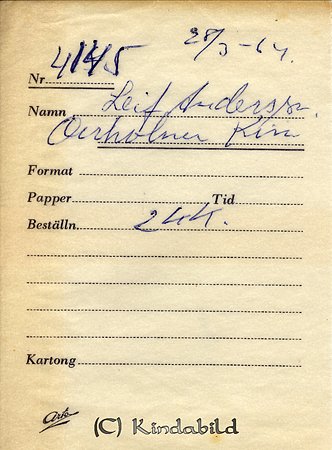 28/3-64.
Nr 4145
Namn Leif Andersson.
Kisa
Format
Papper Tid
Beställn 24 K.
Kartong
Ark
(C) Kindabild